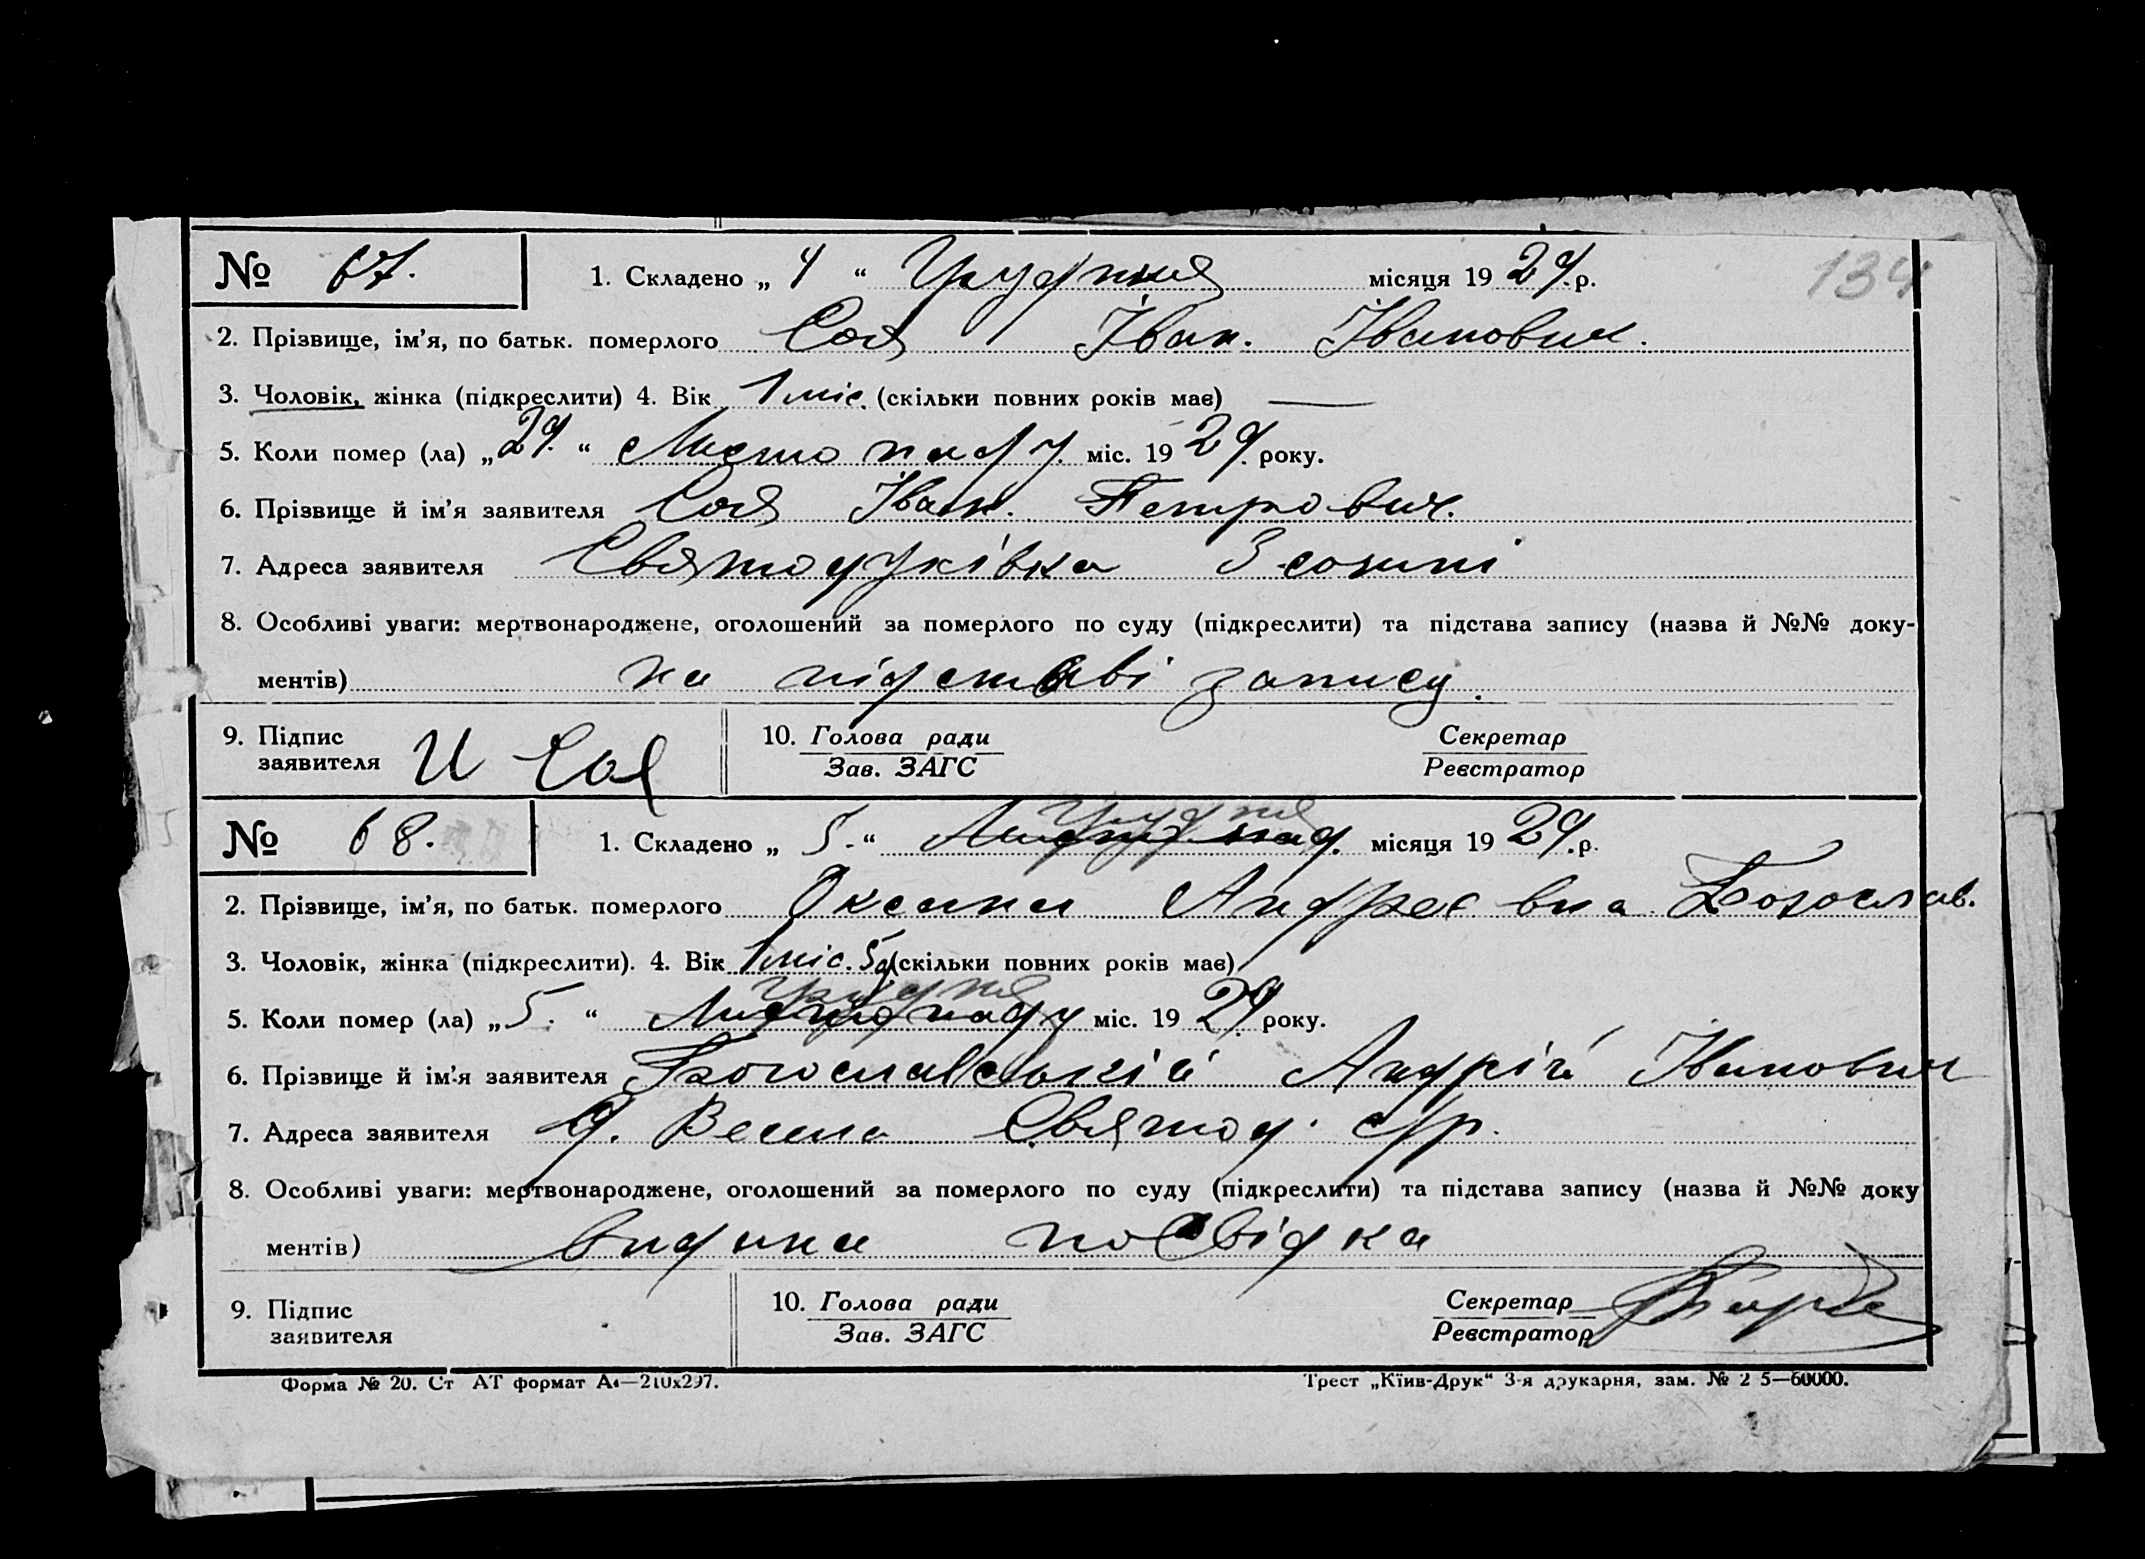 № 67. 1. Складено „ 4 “ Грудния місяця 19 29.р. 134
2. Прізвище, ім’я, по батьк. померлого Соя Іван. Іванович.
3. Чоловік, жінка (підкреслити) 4. Вік 1 міс. (скільки повних років має) —
5. Коли помер (ла) „29.“ Листопаду міс. 19 29. року.
6. Прізвище й ім’я заявителя Соя Іван. Петрович.
7. Адреса заявителя Святодухівка 3 сотні
8. Особливі уваги: мертвонароджене, оголошений за померлого по суду (підкреслити) та підстава запису (назва й №№ доку-
ментів) на підставі запису.
9. Підпис 10. Голова ради Секретар
заявителя И Соя Зав. ЗАГС Реєстратор
Грудня
№ 68. 1. Складено „ 5.“ Листопад. місяця 19 29.р.
2. Прізвище, ім’я, по батьк. померлого Оксана Андреєвна Богослав.
3. Чоловік, жінка (підкреслити). 4. Вік 1 міс. 5д (скільки повних років має)
Грудня
5. Коли помер (ла) „5.“ Листопаду міс. 19 29. року.
6. Прізвище й ім’я заявителя Богославський Андрій Іванович
7. Адреса заявителя д. Весела Святод. с/р.
8. Особливі уваги: мертвонароджене, оголошений за померлого по суду (підкреслити) та підстава запису (назва й №№ доку
ментів) видана посвідка
9. Підпис 10. Голова ради Секретар
заявителя Зав. ЗАГС Реєстратор
Форма № 20. Ст АТ формат А4—210х297. Трест „Київ-Друк“ 3-я друкарня, зам. № 2 5—60000.